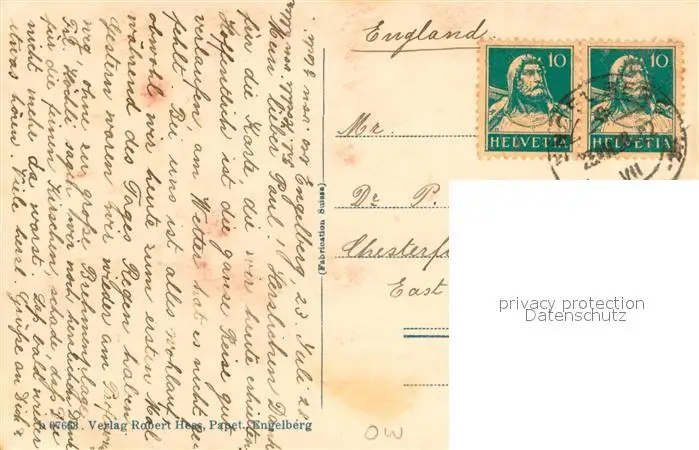 England.
10
10
HELVETIA
HELVETIA
Mr.
Dr. P.
Chesterf
East
privacy protection
Datenschutz
(Fabrication Suisse)
Engelberg, 23. Juli 28.
Mein lieber Paul! Herzlichen Dank
für die Karte, die wir heute erhielten.
Hoffentlich ist die ganze Reise gut
verlaufen, am Wetter hat es nicht ge-
fehlt. Bei uns ist alles wohlauf,
obwohl wir heute zum ersten Mal
während des Tages Regen haben.
Gestern waren wir wieder am
weg, ohne zu große Bremsenplage.
Frl. sagt noch herzlichen Dank
für die feinen Kirschen, schade, daß Du
nicht mehr da warst. Laß bald wieder
etwas hören. Viele herzl. Grüße an Dich &
67663. Verlag Robert Hess, Papet. Engelberg
OW